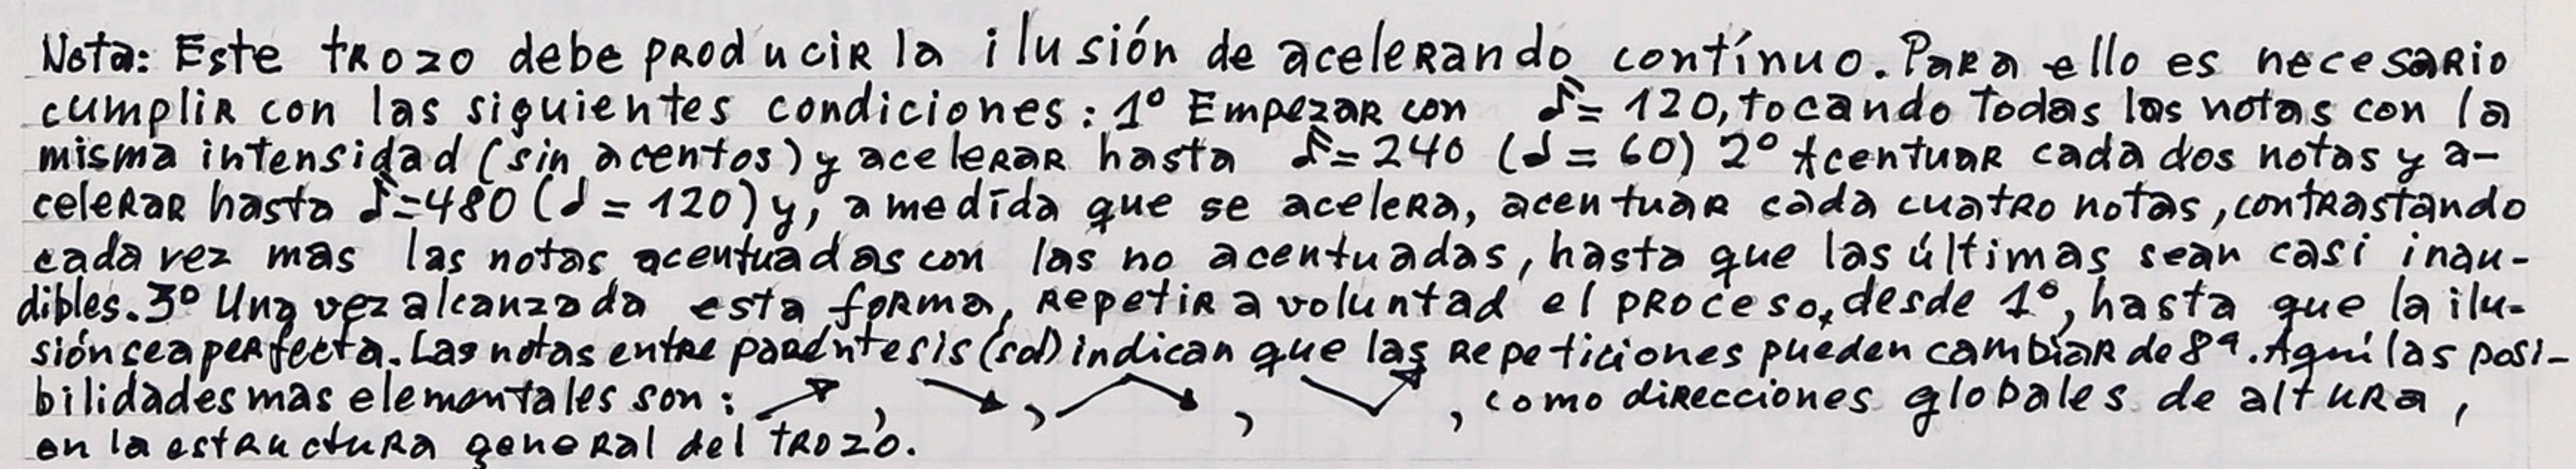 Nota: Este trozo debe producir la ilusión de acelerando contínuo. Para ello es necesario
cumplir con las siguientes condiciones: 1º Empezar con ♪= 120, tocando todas las notas con la
misma intensidad (sin acentos) y acelerar hasta ♪=240 (𝅗𝅥 = 60) 2º Acentuar cada dos notas y a-
celerar hasta ♪=480 (𝅗𝅥 = 120) y, a medída que se acelera, acentuar cada cuatro notas, contrastando
cada vez mas las notas acentuadas con las no acentuadas, hasta que las últimas sean casi inau-
dibles. 3º Una vez alcanzada esta forma, repetir a voluntad el proceso, desde 1º, hasta que la ilu-
sión sea perfecta. Las notas entre paréntesis (sol) indican que las repeticiones pueden cambiar de 8ª. Aquí las posi-
bilidades mas elementales son: , , , , como direcciones globales de altura,
en la estructura general del trozo.